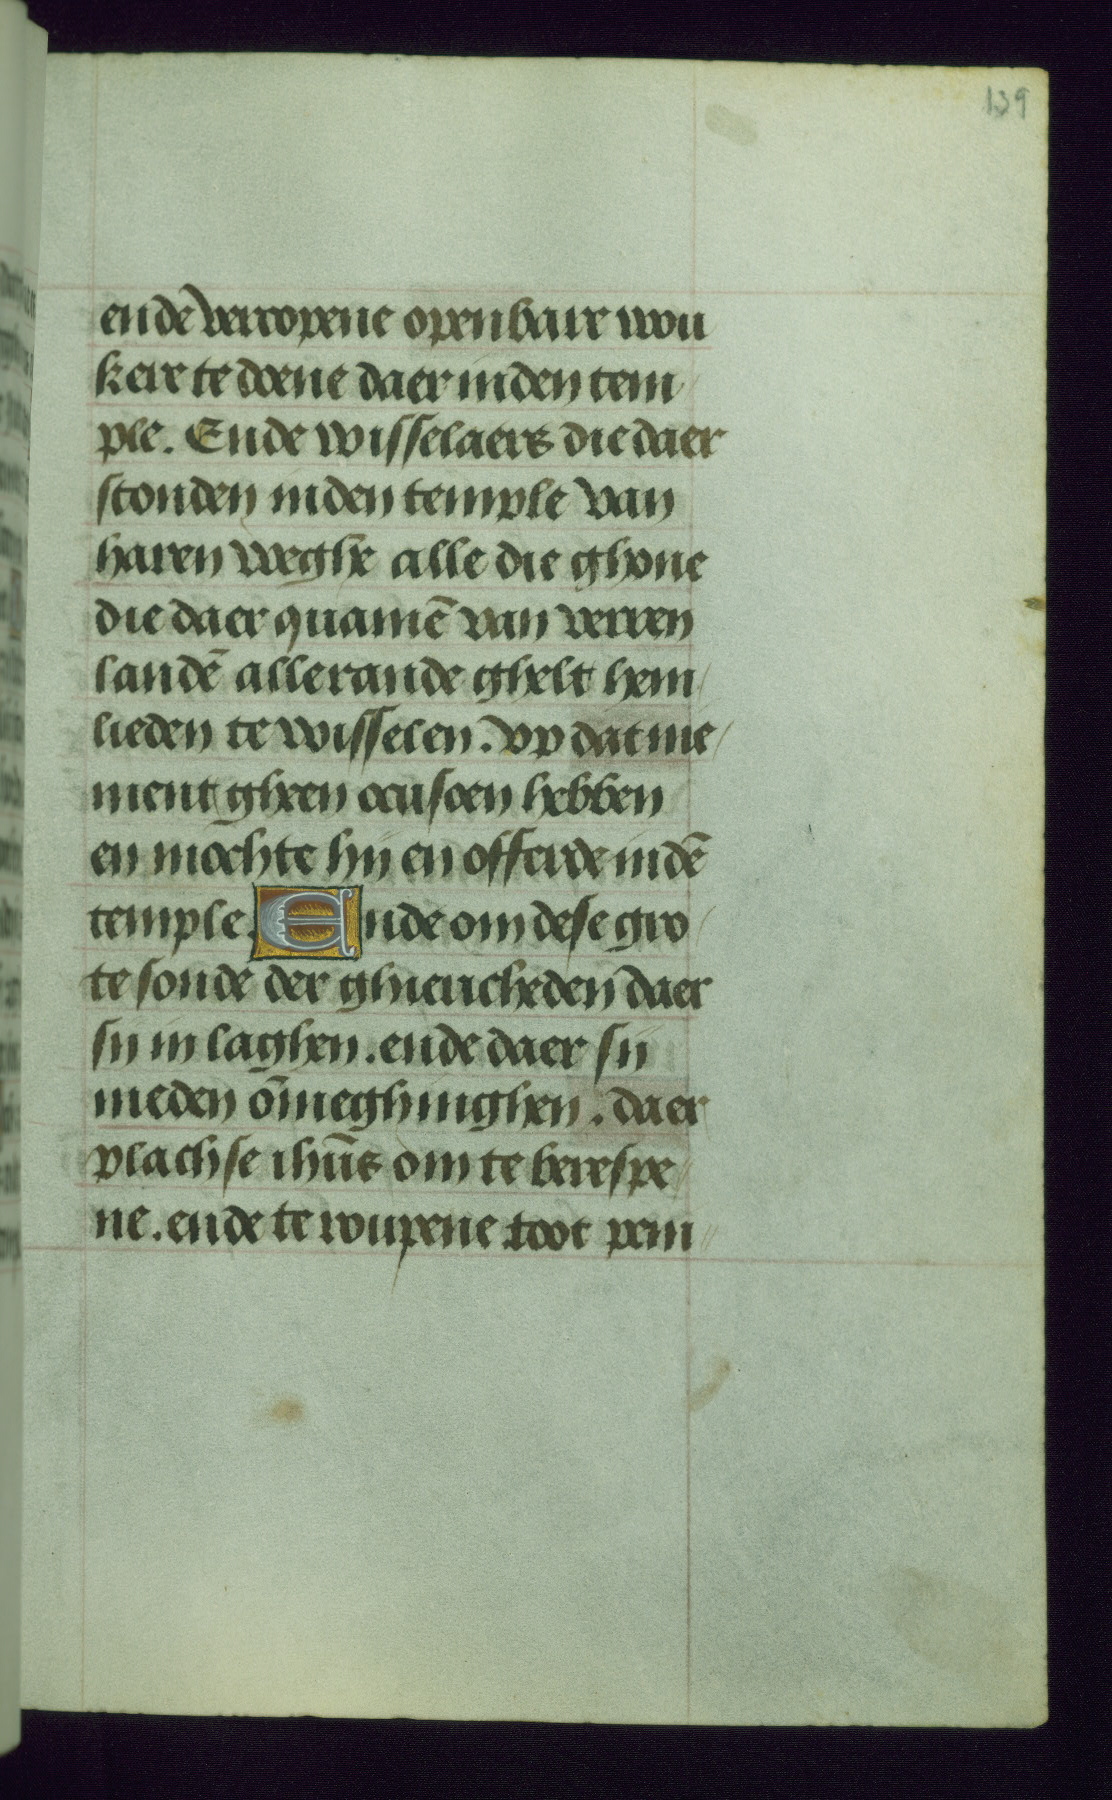 139
ende vercopene openbaer wou
kere te doene daer inden tem
ple. Ende wisselaers die daer
stonden inden temple van
haren weghe alle die ghone
die daer quamē van verren
landē allerande ghelt hem
lieden te wisselen. vp dat nie
ment gheen ocusoen hebben
en mochte hij en offerde indē
temple. Ende om dese gro
te sonde der ghiericheden daer
sij in laghen. ende daer sij
meden ōmeghinghen. daer
plach se ihūs om te berespe
ne. ende te roupene toot peni